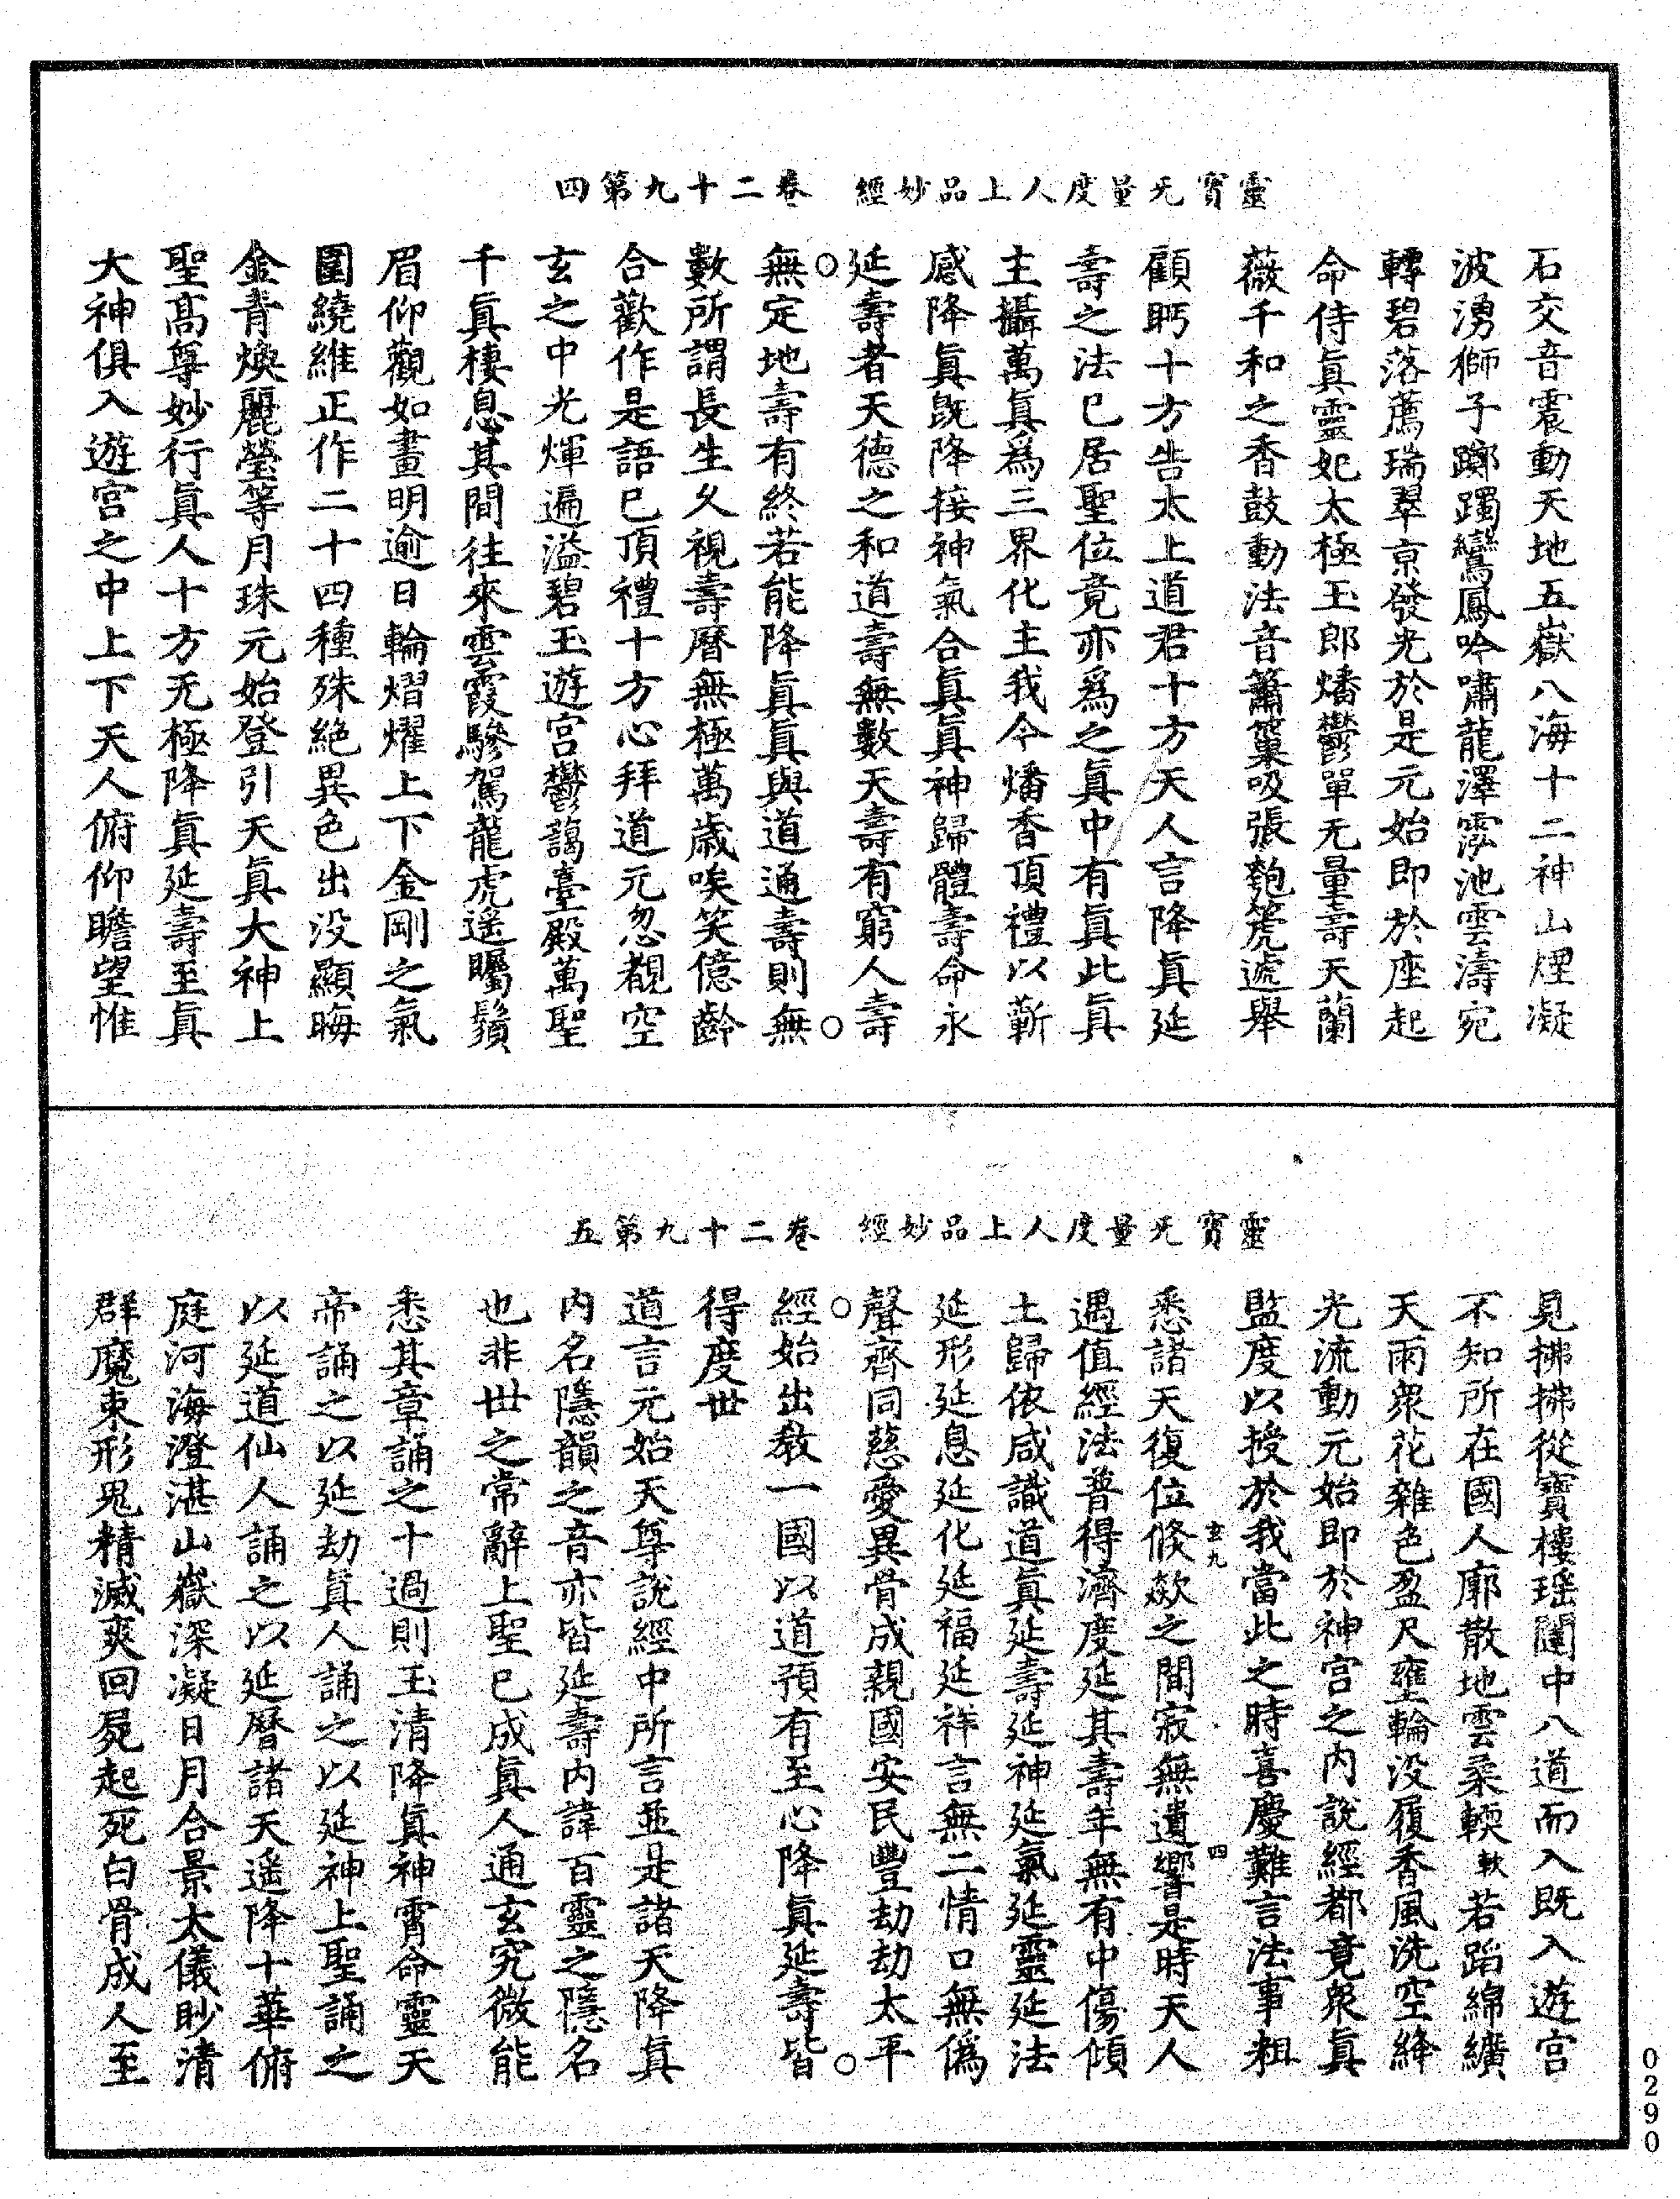 靈寳无量度人上品妙經　卷二十九第四
石交音震動天地五嶽八海十二神山煙凝
波湧獅子躑躅鸞鳳吟嘯龍澤䨦池雲濤宛
轉碧落薦瑞翠京發光於是元始即於座起
命侍眞靈妃太極玉郎燔鬱單无量壽天蘭
薇千和之香鼓動法音簫篥吸張匏箎遞舉
顧眄十方告太上道君十方天人言降眞延
壽之法已居聖位竟亦爲之眞中有眞此眞
主攝萬眞爲三界化主我今燔香頂禮以蘄
感降眞旣降接神氣合眞眞神歸體壽命永
延壽者天德之和道壽無數天壽有窮人壽
無定地壽有終若能降眞眞與道通壽則無
數所謂長生久視壽曆無極萬歲唉笑億齡
合歡作是語已頂禮十方心拜道元忽覩空
玄之中光煇遍溢碧玉遊宮鬱藹臺殿萬聖
千眞棲息其間往來雲霞驂駕龍虎遥矚鬚
眉仰觀如晝明逾日輪熠燿上下金剛之氣
圍繞維正作二十四種殊絶異色出没顯晦
金青煥麗瑩等月珠元始登引天眞大神上
聖高尊妙行眞人十方无極降眞延壽至眞
大神俱入遊宮之中上下天人俯仰瞻望惟
靈寳无量度人上品妙經　卷二十九第五
見拂拂從寳樓瑶闉中八道而入既入遊宮
不知所在國人廓散地雲柔輭軟若蹈綿纊
天雨衆花雜色盈尺壅輪没履香風洗空絳
光流動元始即於神宮之内說經都竟衆眞
監度以授於我當此之時喜慶難言法事粗
玄九　四
悉諸天復位倏欻之間寂無遺響是時天人
遇值經法普得濟度延其壽年無有中傷傾
土歸依咸識道眞延壽延神延氣延靈延法
延形延息延化延福延祥言無二情口無僞
聲齊同慈愛異骨成親國安民豐劫劫太平
經始出教一國以道預有至心降眞延壽皆
得度世
道言元始天尊說經中所言並是諸天降眞
内名隱韻之音亦皆延壽内諱百靈之隱名
也非世之常辭上聖已成眞人通玄究微能
悉其章誦之十過則玉清降眞神霄命靈天
帝誦之以延劫眞人誦之以延神上聖誦之
以延道仙人誦之以延曆諸天遥降十華俯
庭河海澄湛山嶽深凝日月合景太儀眇清
群魔束形鬼精滅爽回屍起死白骨成人至
0290